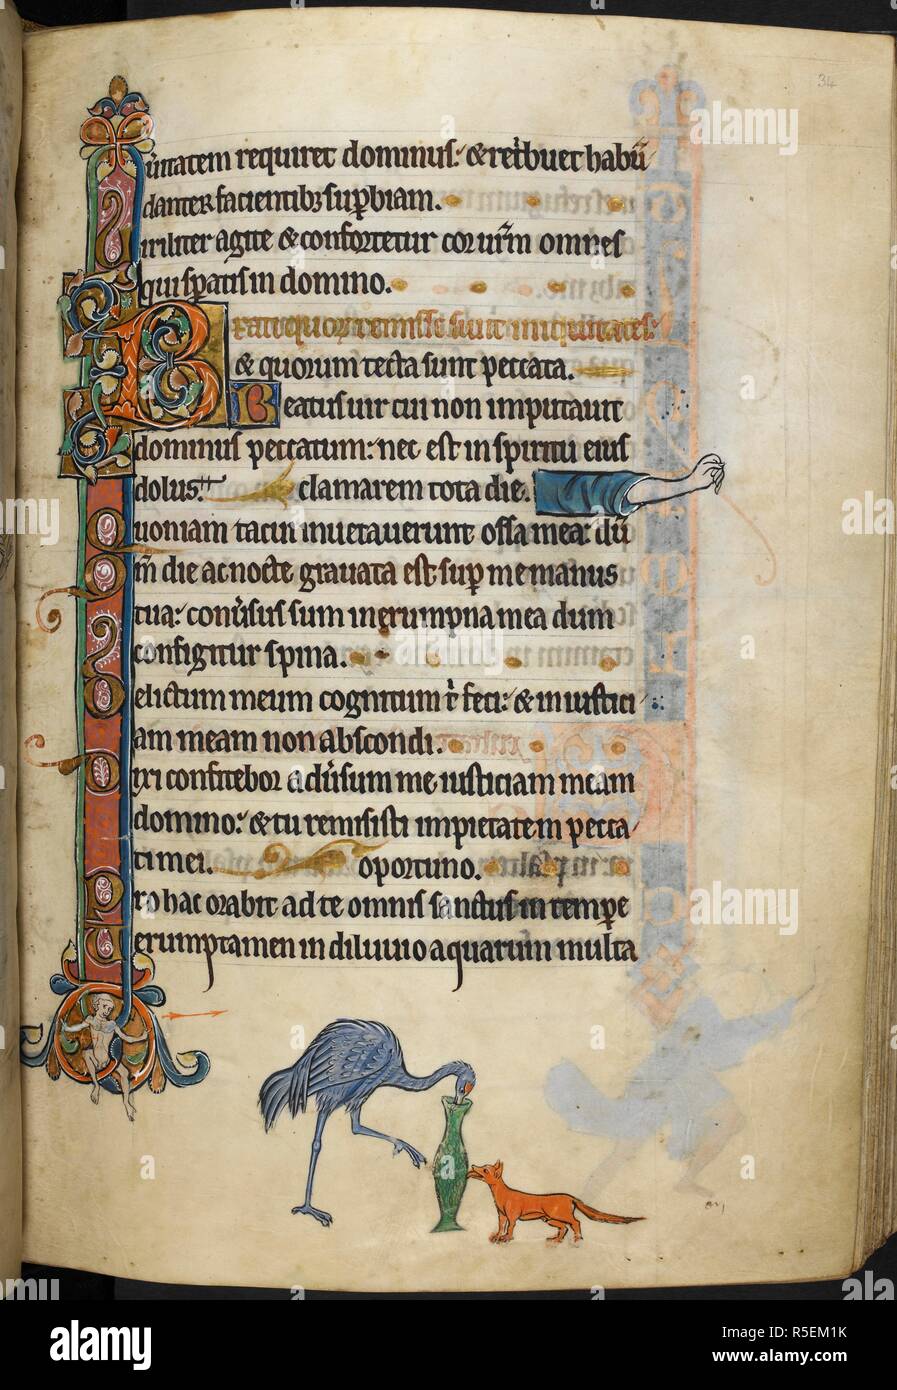 34
uıtatem requiret dominus: & ret'buet habū
danter facientibꝫ sup̄biam.
iriliter agite & confortetur cor ur̄m omnes
qui sp̄atis in domino.
B eati quorū remisse sunt iniquitates:
& quorum tecta sunt peccata.
B eatus uir cui non imputauit
dominus peccatum: nec est in spiritu eius
dolus. clamarem tota die.
uoniam tacui inuetauerunt ossa mea: dū
m̄ die ac nocte grauata est sup̄ me manus
tua: conu'sus sum in erumpna mea dum
configitur spina.
elictum meum cognitum t' feci: & iniustici
am meam non abscondi.
ixi confitebor adu'sum me iusticiam meam
domino: & tu remisisti impietatem pecca
ti mei. oportuno.
ro hac orabit ad te omnis sanctus in tempe
erumptamen in diluuio aquarum multa
alamy
Image ID: R5EM1K
www.alamy.com